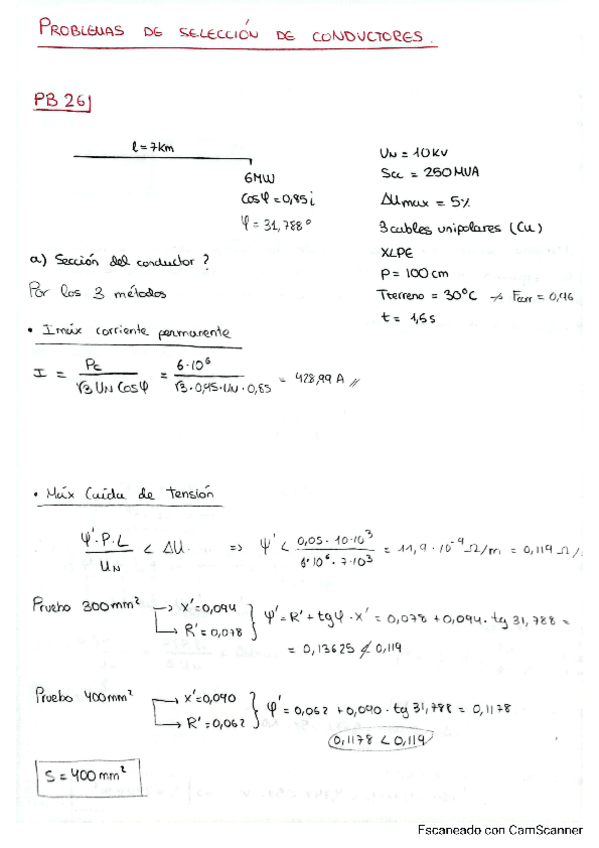 PROBLEMAS DE SELECCIÓN DE CONDUCTORES.
PB 26)
l = 7km
6MW
Cosφ = 0,85 i
φ = 31,788°
UN = 10KV
Scc = 250 MVA
ΔUmax = 5%
3 cables unipolares (Cu)
XLPE
P = 100 cm
Tterreno = 30°C → Fcorr = 0,96
t = 1,5 s
a) Sección del conductor?
Por los 3 métodos
• Imáx corriente permanente
I = Pc / √3 UN Cosφ = 6·10⁶ / √3·0,95·UN·0,85 = 428,99 A //
• Máx Caída de Tensión
Ψ'·P·L / UN < ΔU ⇒ Ψ' < 0,05·10·10³ / 6·10⁶·7·10³ = 11,9·10⁻⁹ Ω/m = 0,119 Ω/
Pruebo 300mm² → X' = 0,094
→ R' = 0,078
Ψ' = R' + tgφ · X' = 0,078 + 0,094 · tg 31,788 =
= 0,13625 ≮ 0,119
Pruebo 400mm² → X' = 0,090
→ R' = 0,062
Ψ' = 0,062 + 0,090 · tg 31,788 = 0,1178
0,1178 < 0,119
S = 400 mm²
Escaneado con CamScanner